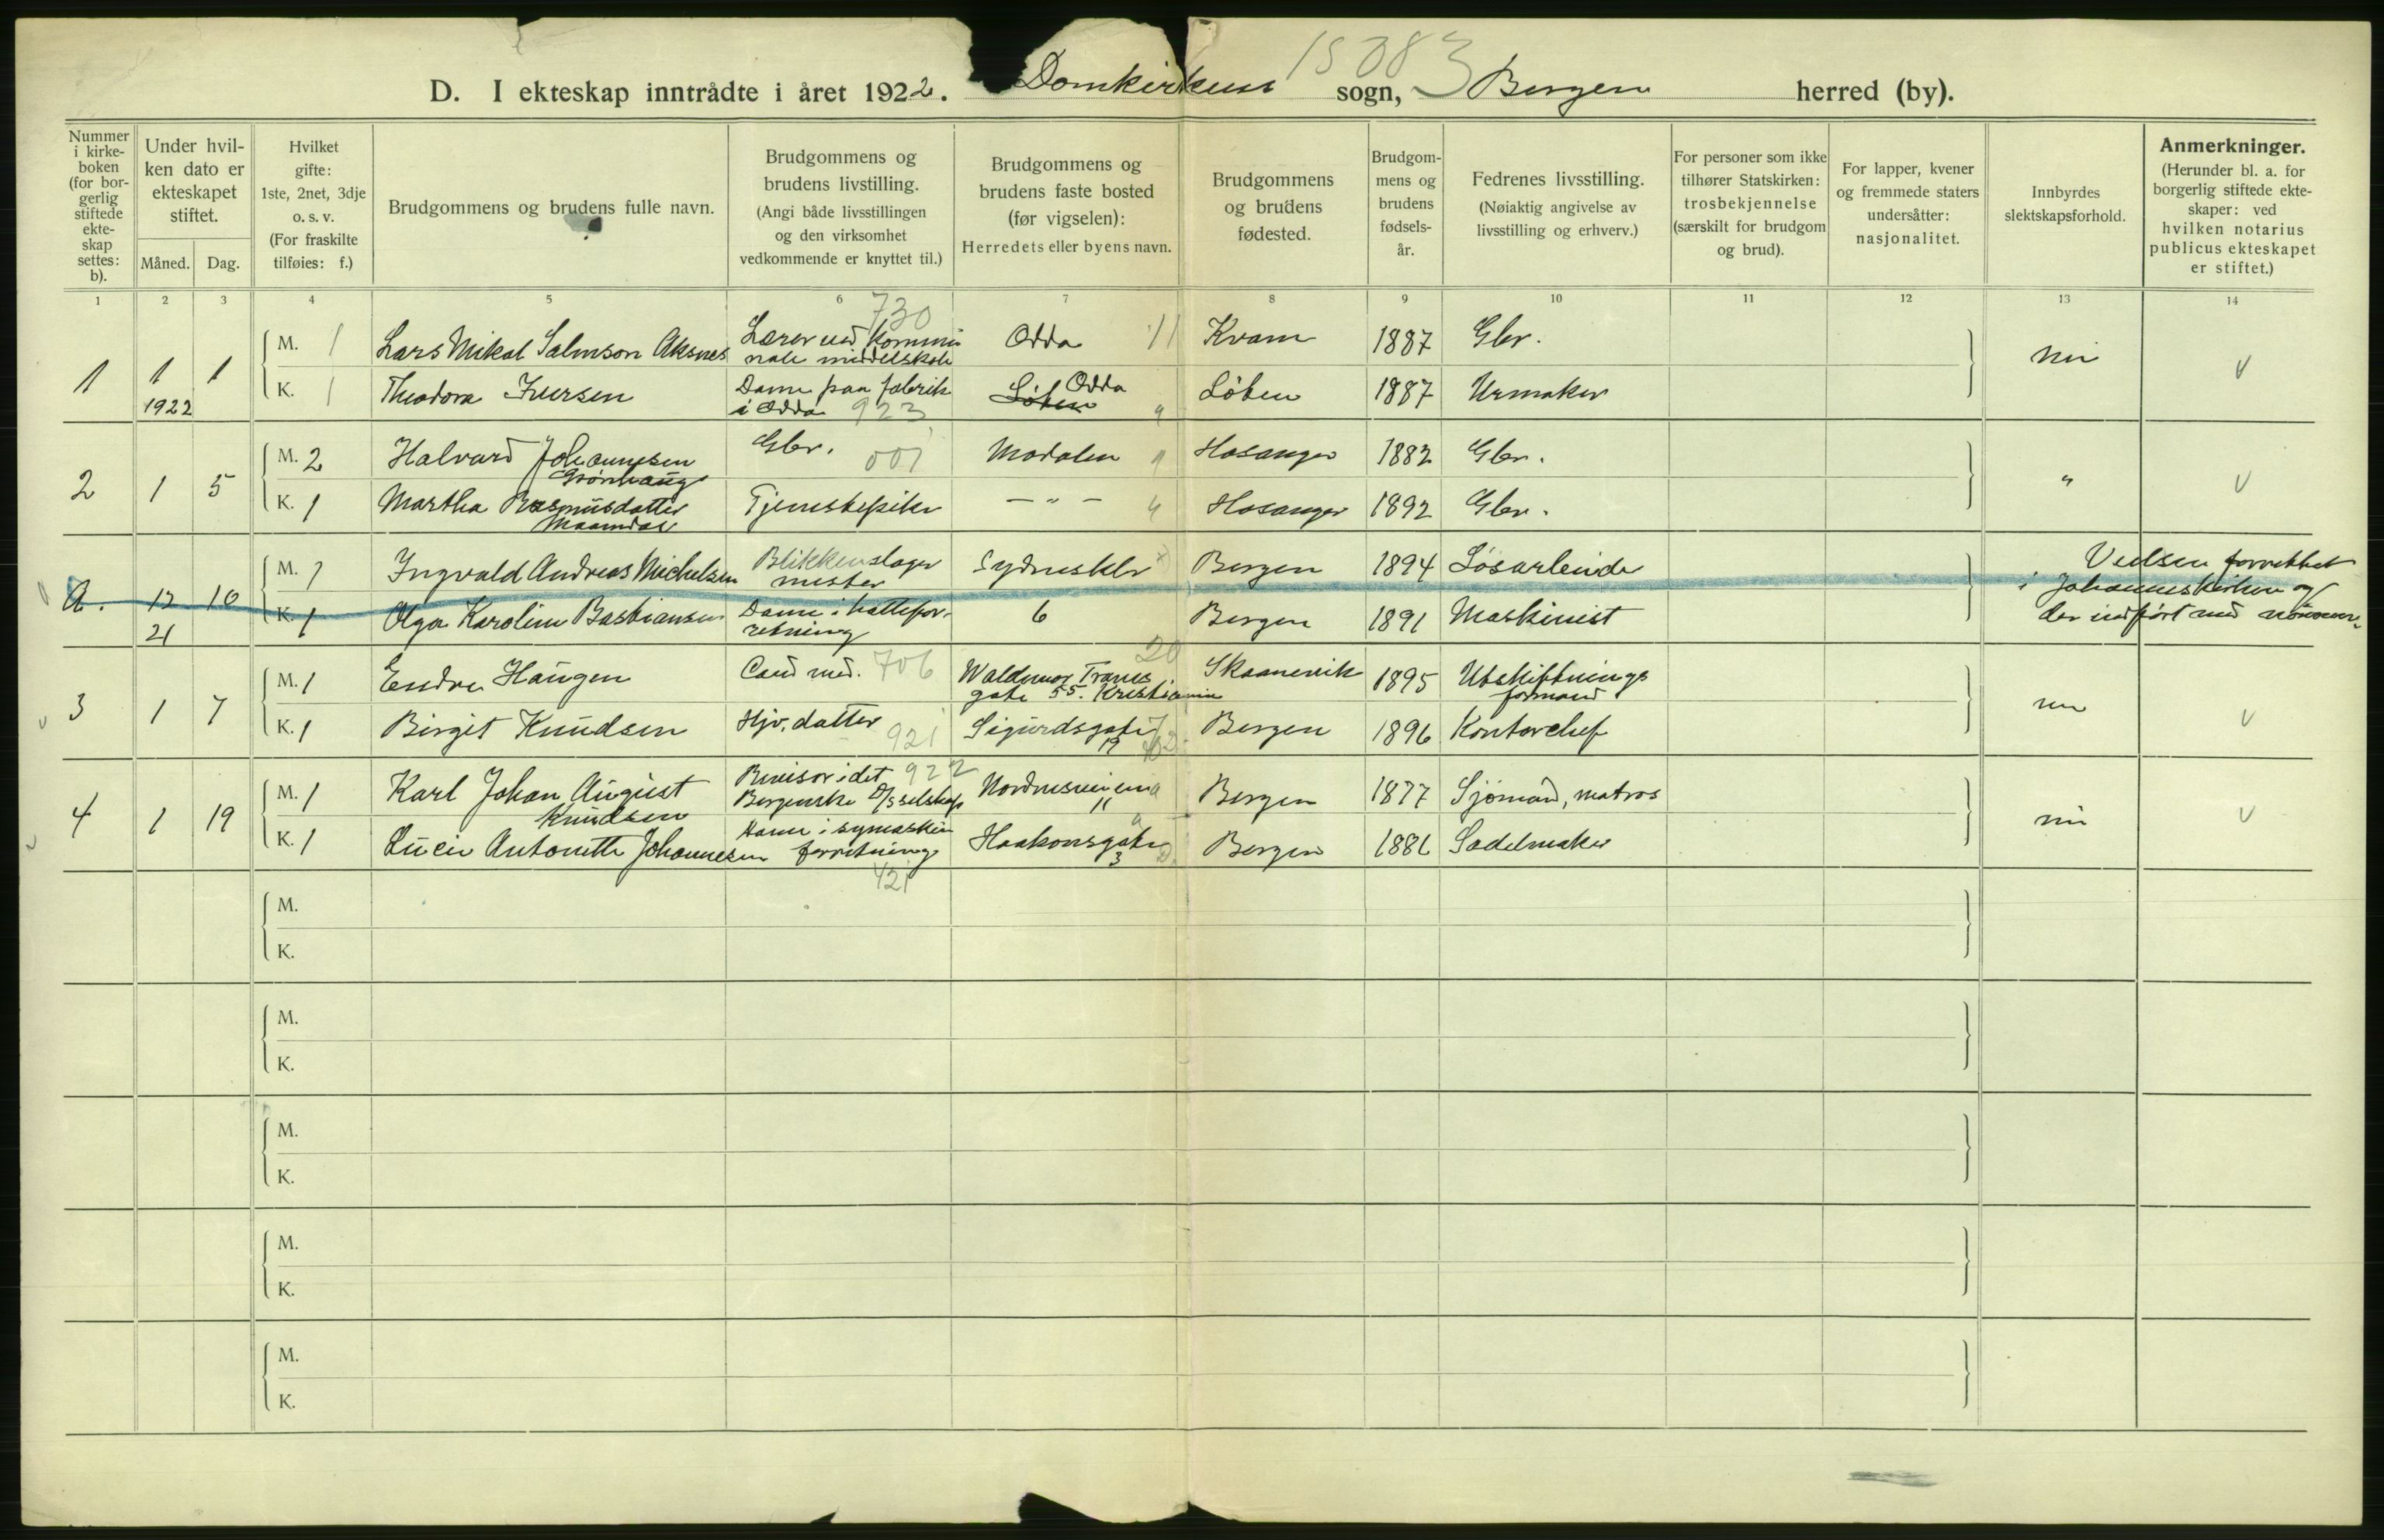 15083
D. I ekteskap inntrådte i året 1922. Domkirkens sogn, Bergen herred (by).
Nummer i kirkeboken (for borgerlig stiftede ekteskap settes: b).
Under hvilken dato er ekteskapet stiftet.
Måned. Dag.
Hvilket gifte: 1ste, 2net, 3dje o. s. v. (For fraskilte tilføies: f.)
Brudgommens og brudens fulle navn.
Brudgommens og brudens livstilling. (Angi både livsstillingen og den virksomhet vedkommende er knyttet til.)
Brudgommens og brudens faste bosted (før vigselen): Herredets eller byens navn.
Brudgommens og brudens fødested.
Brudgommens og brudens fødselsår.
Fedrenes livsstilling. (Nøiaktig angivelse av livsstilling og erhverv.)
For personer som ikke tilhører Statskirken: trosbekjennelse (særskilt for brudgom og brud).
For lapper, kvener og fremmede staters undersåtter: nasjonalitet.
Innbyrdes slektskapsforhold.
Anmerkninger. (Herunder bl. a. for borgerlig stiftede ekteskaper: ved hvilken notarius publicus ekteskapet er stiftet.)
1 2 3 4 5 6 7 8 9 10 11 12 13 14
730
1 1 1 M. 1 Lars Mikal Salmson Aksnes Lærer ved kommunale middelskole Odda 11 Kvam 1887 Gbr. nei V
1922 K. 1 Theodora Iversen Dame paa fabrik i Odda 923 Løten Odda Løten 1887 Urmaker
2 1 5 M. 2 Halvard Johannesen Grønhaug Gbr. 001 Modalen Hosanger 1882 Gbr. " V
K. 1 Martha Rasmusdatter Maamdal Tjenestepike — " — Hosanger 1892 Gbr.
a. 12 10 M. 1 Ingvald Andreas Michelsen Blikkenslager mester Sydneskl Bergen 1894 Løsarbeide Vielsen forrettet
21 K. 1 Olga Karoline Bastiansen Dame i hatteforretning 6 Bergen 1891 Maskinist i Johanneskirken og der indført med nummer.
3 1 7 M. 1 Endre Haugen Cand med. 706 Waldemar Tranes gate 55. Kristiania 20 Skaanevik 1895 Utskiftnings formand nei V
K. 1 Birgit Knudsen Hjv. datter 921 Sigurdsgate 19 Bergen 1896 Kontorchef
4 1 19 M. 1 Karl Johan August Knudsen Revisor i det Bergenske D/s selskap 922 Nordnesveien 11 Bergen 1877 Sjømand, matros nei V
K. 1 Lucie Antonette Johannesen Dame i symaskin forretning 421 Haakonsgate 3 Bergen 1881 Sadelmaker
M.
K.
M.
K.
M.
K.
M.
K.
M.
K.